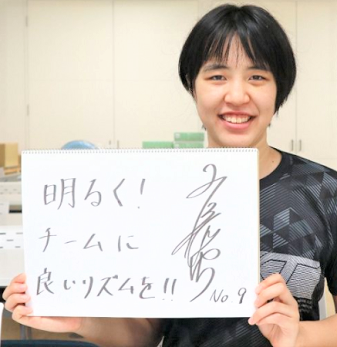 明るく!
チームに
良いリズムを!!
No 9